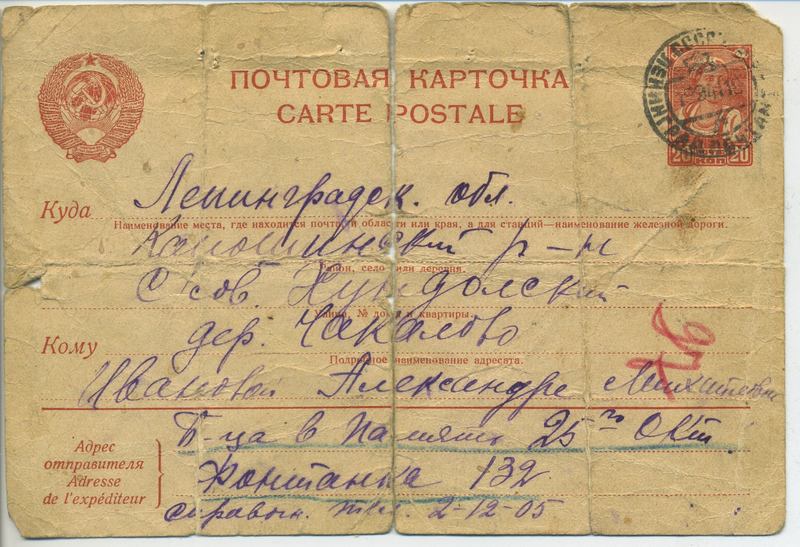 ПОЧТОВАЯ КАРТОЧКА
CARTE POSTALE
20 КОП 20
Куда Ленинградск. обл.
Наименование места, где находится почта и области или края, а для станций—наименование железной дороги.
р-н
Район, село или деревня.
С сов.
Улица, № дома и квартиры.
дер. Чакалово
Кому
Подробное наименование адресата.
Ивановой Александре
97
Б-ца в Память 25го Окт
Адрес
отправителя
Adresse
de l'expéditeur
Фонтанка 132
справочн. тел. 2-12-05